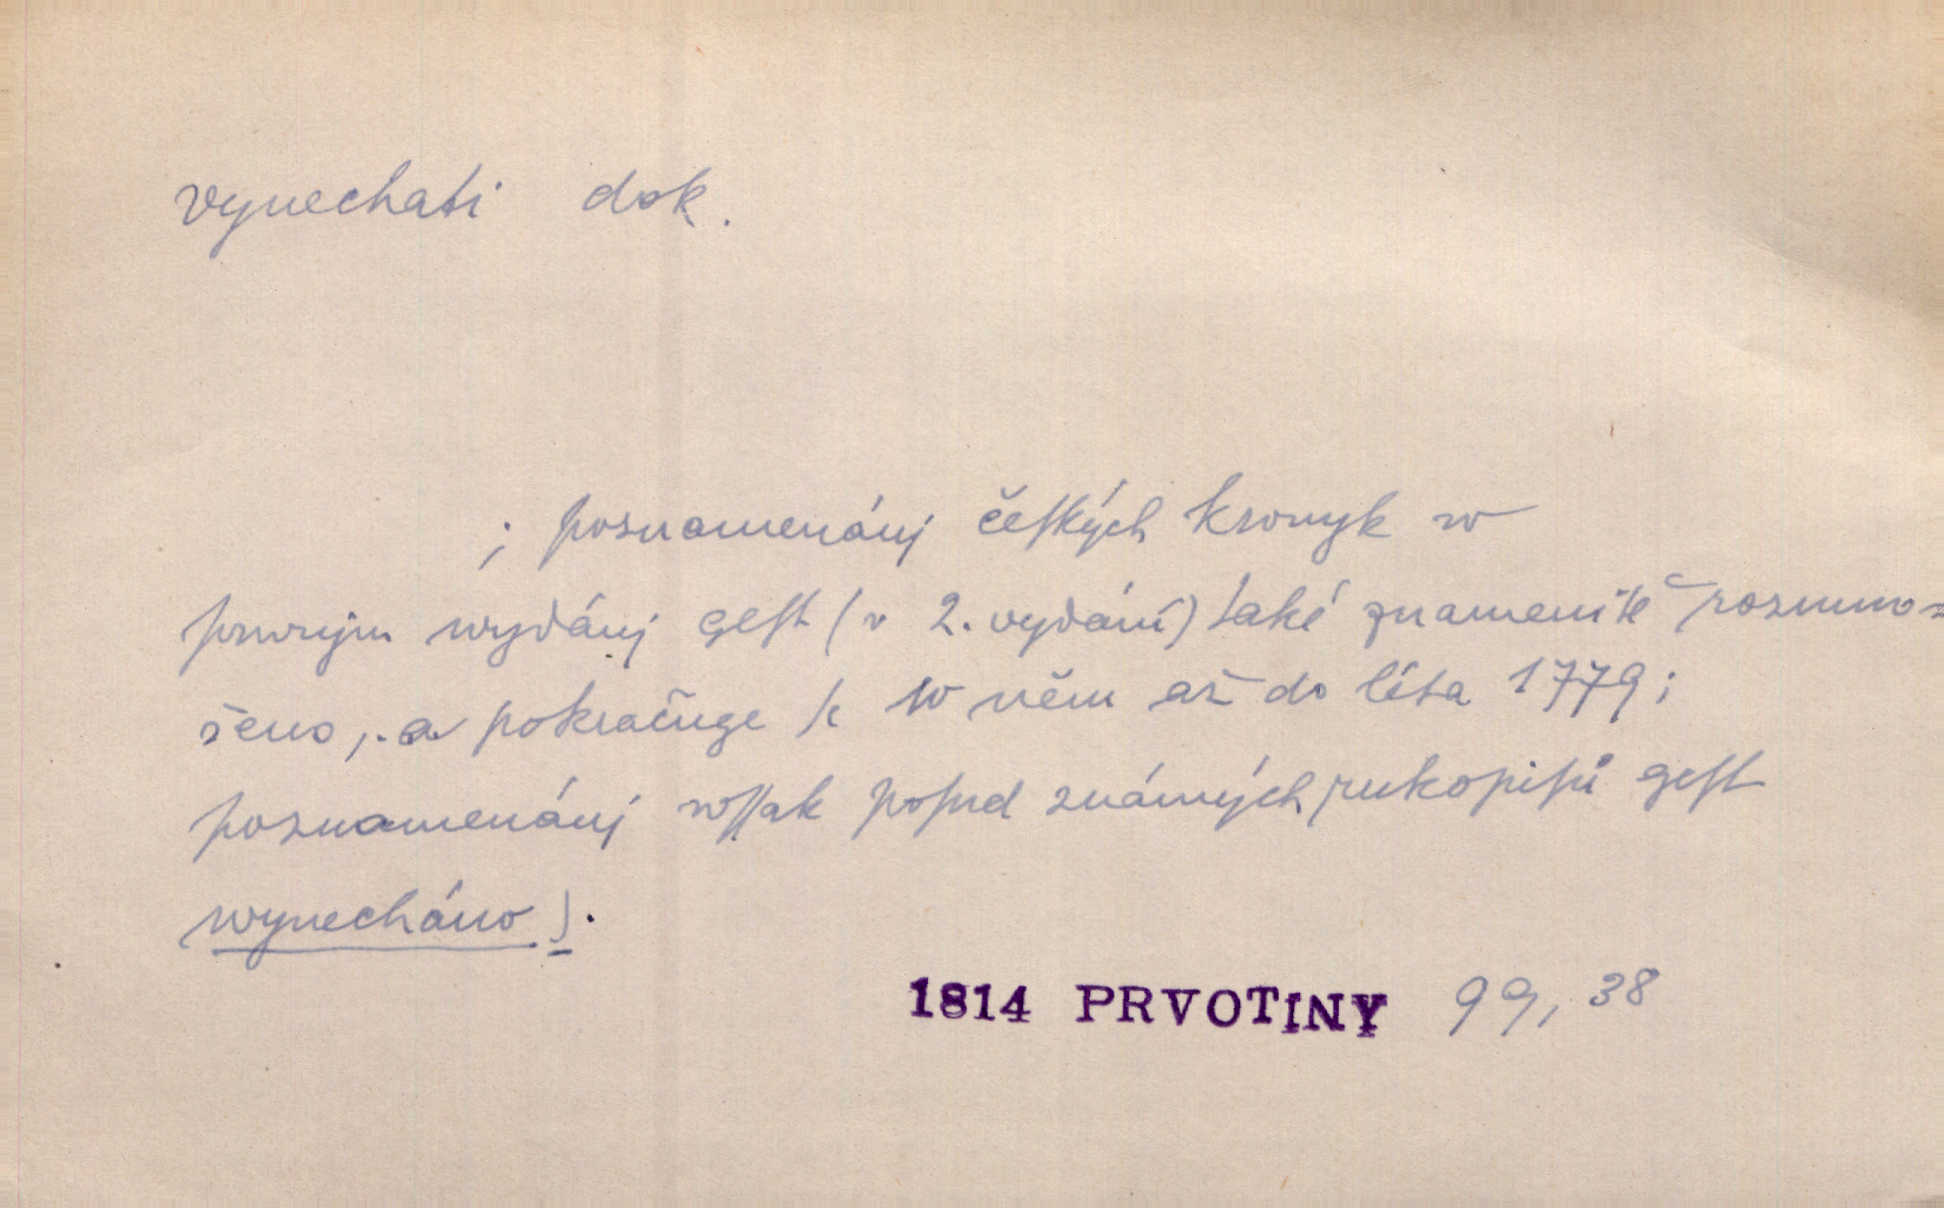 vynechati dok.
; poznamenánj čeſkých kronyk w
prwnjm wydánj geſt (v 2. vydání) také znamenitě rozmno=
ženo, a pokračuge ſe w něm až do léta 1779;
poznamenánj wſſak poſud známých rukopiſů geſt
wynecháno).
1814 PRVOTINY 99, 38